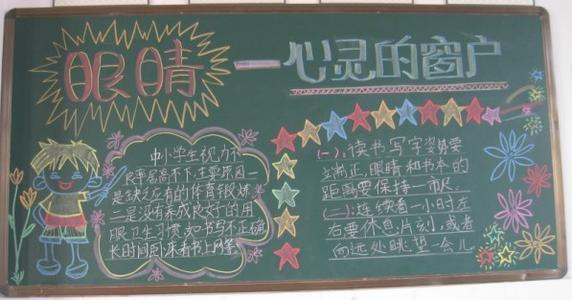 眼睛一心灵的窗户
中小学生视力不
良率居高不下,主要原因一
是缺乏应有的体育锻炼
二是没有养成良好的用
眼卫生习惯,如书写不正确
长时间卧床看书上网等
(一)、读书写字姿势要
端正,眼睛和书本的
距离要保持一市尺。
(二)、连续看一小时左
右要休息片刻,或者
向远处眺望一会儿